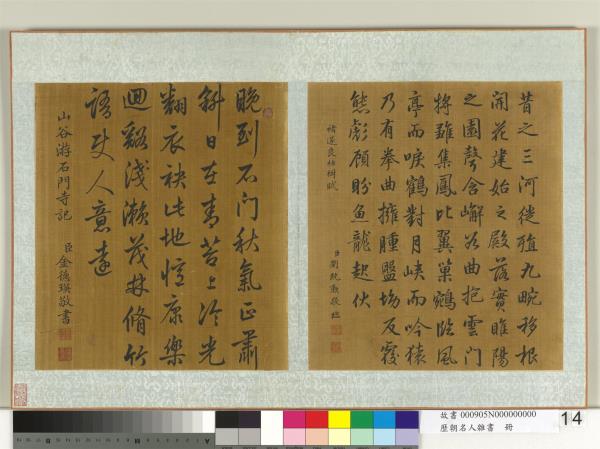 昔之三河徙殖九畹移根
開花建始之殿落實睢陽
之園聲含嶰谷曲抱雲門
將雛集鳳比翼巢鵷臨風
亭而唳鶴對月峽而吟猿
乃有拳曲擁腫盤坳反覆
熊彪顧盼魚龍起伏
褚遂良枯樹賦
晚到石门秋氣正蕭
斜日在青苔上冷光
翻衣袂此地恆康樂
迴谿淺瀨茂林脩竹
語使人意遠
山谷游石門寺記
臣金德瑛敬書
故書 000905N000000000
歷朝名人雜書 冊
14